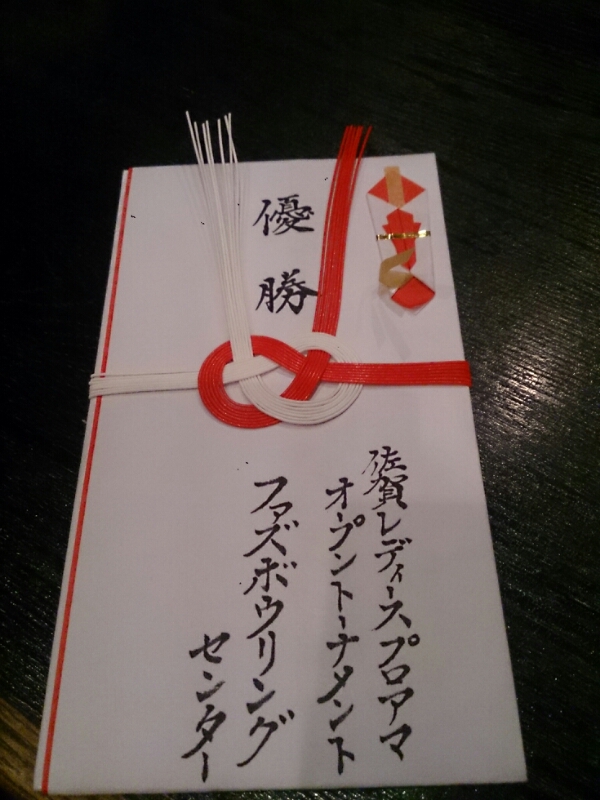 優勝
佐賀レディースプロアマ
オープントーナメント
ファズボウリング
センター